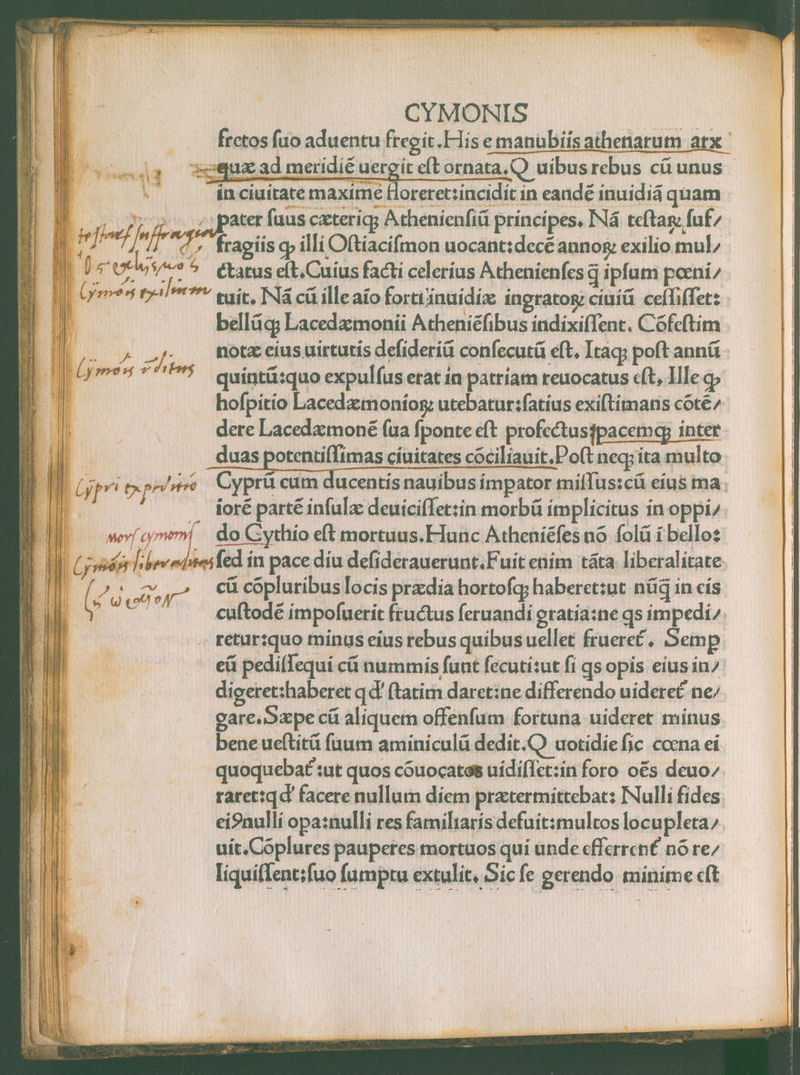 CYMONIS
fretos ſuo aduentu fregit.His e manubiis athenarum arx
quæ ad meridiē uergit eſt ornata.Quibus rebus cū unus
in ciuitate maxime floreret:incidit in eandē inuidiā quam
pater ſuus cæteriqꝫ Athenienſiū principes. Nā teſtaꝝ ſuf⸗
fragiis ꝙ illi Oſtiaciſmon uocant:decē annoꝝ exilio mul⸗
ctatus eſt.Cuius facti celerius Athenienſes q̄ ipſum pœni⸗
tuit. Nā cū ille aīo forti inuidiæ ingratoꝝ ciuiū ceſſiſſet:
bellūqꝫ Lacedæmonii Atheniēſibus indixiſſent. Cōfeſtim
notæ eius uirtutis deſideriū conſecutū eſt. Itaqꝫ poſt annū
quintū:quo expulſus erat in patriam reuocatus eſt. Ille ꝙ
hoſpitio Lacedæmonioꝝ utebatur:ſatius exiſtimans cōtē⸗
dere Lacedæmonē ſua ſponte eſt profectus:pacemqꝫ inter
duas potentiſſimas ciuitates cōciliauit.Poſt neqꝫ ita multo
Cyprū cum ducentis nauibus impator miſſus:cū eius ma
iorē partē inſulæ deuiciſſet:in morbū implicitus in oppi⸗
do Cythio eſt mortuus.Hunc Atheniēſes nō ſolū ī bello:
ſed in pace diu deſiderauerunt.Fuit enim tāta liberalitate
cū cōpluribus locis prædia hortoſqꝫ haberet:ut nūq̄ in eis
cuſtodē impoſuerit fructus ſeruandi gratia:ne qs impedi⸗
retur:quo minus eius rebus quibus uellet frueret᷑. Semp
eū pediſſequi cū nummis ſunt ſecuti:ut ſi qs opis eius in⸗
digeret:haberet qd' ſtatim daret:ne differendo uideret᷑ ne⸗
gare.Sæpe cū aliquem offenſum fortuna uideret minus
bene ueſtitū ſuum aminiculū dedit.Quotidie ſic cœna ei
quoquebat᷑:ut quos cōuocatos uidiſſet:in foro oēs deuo⸗
raret:qd' facere nullum diem prætermittebat: Nulli fides
eiꝰnulli opa:nulli res familiaris defuit:multos locupleta⸗
uit.Cōplures pauperes mortuos qui unde efferrent᷑ nō re⸗
liquiſſent:ſuo ſumptu extulit. Sic ſe gerendo minime eſt
Cymonis exilium
Cymonis reditus
Cypri expeditio
Morſ cymonis
Cymonis liberalitas